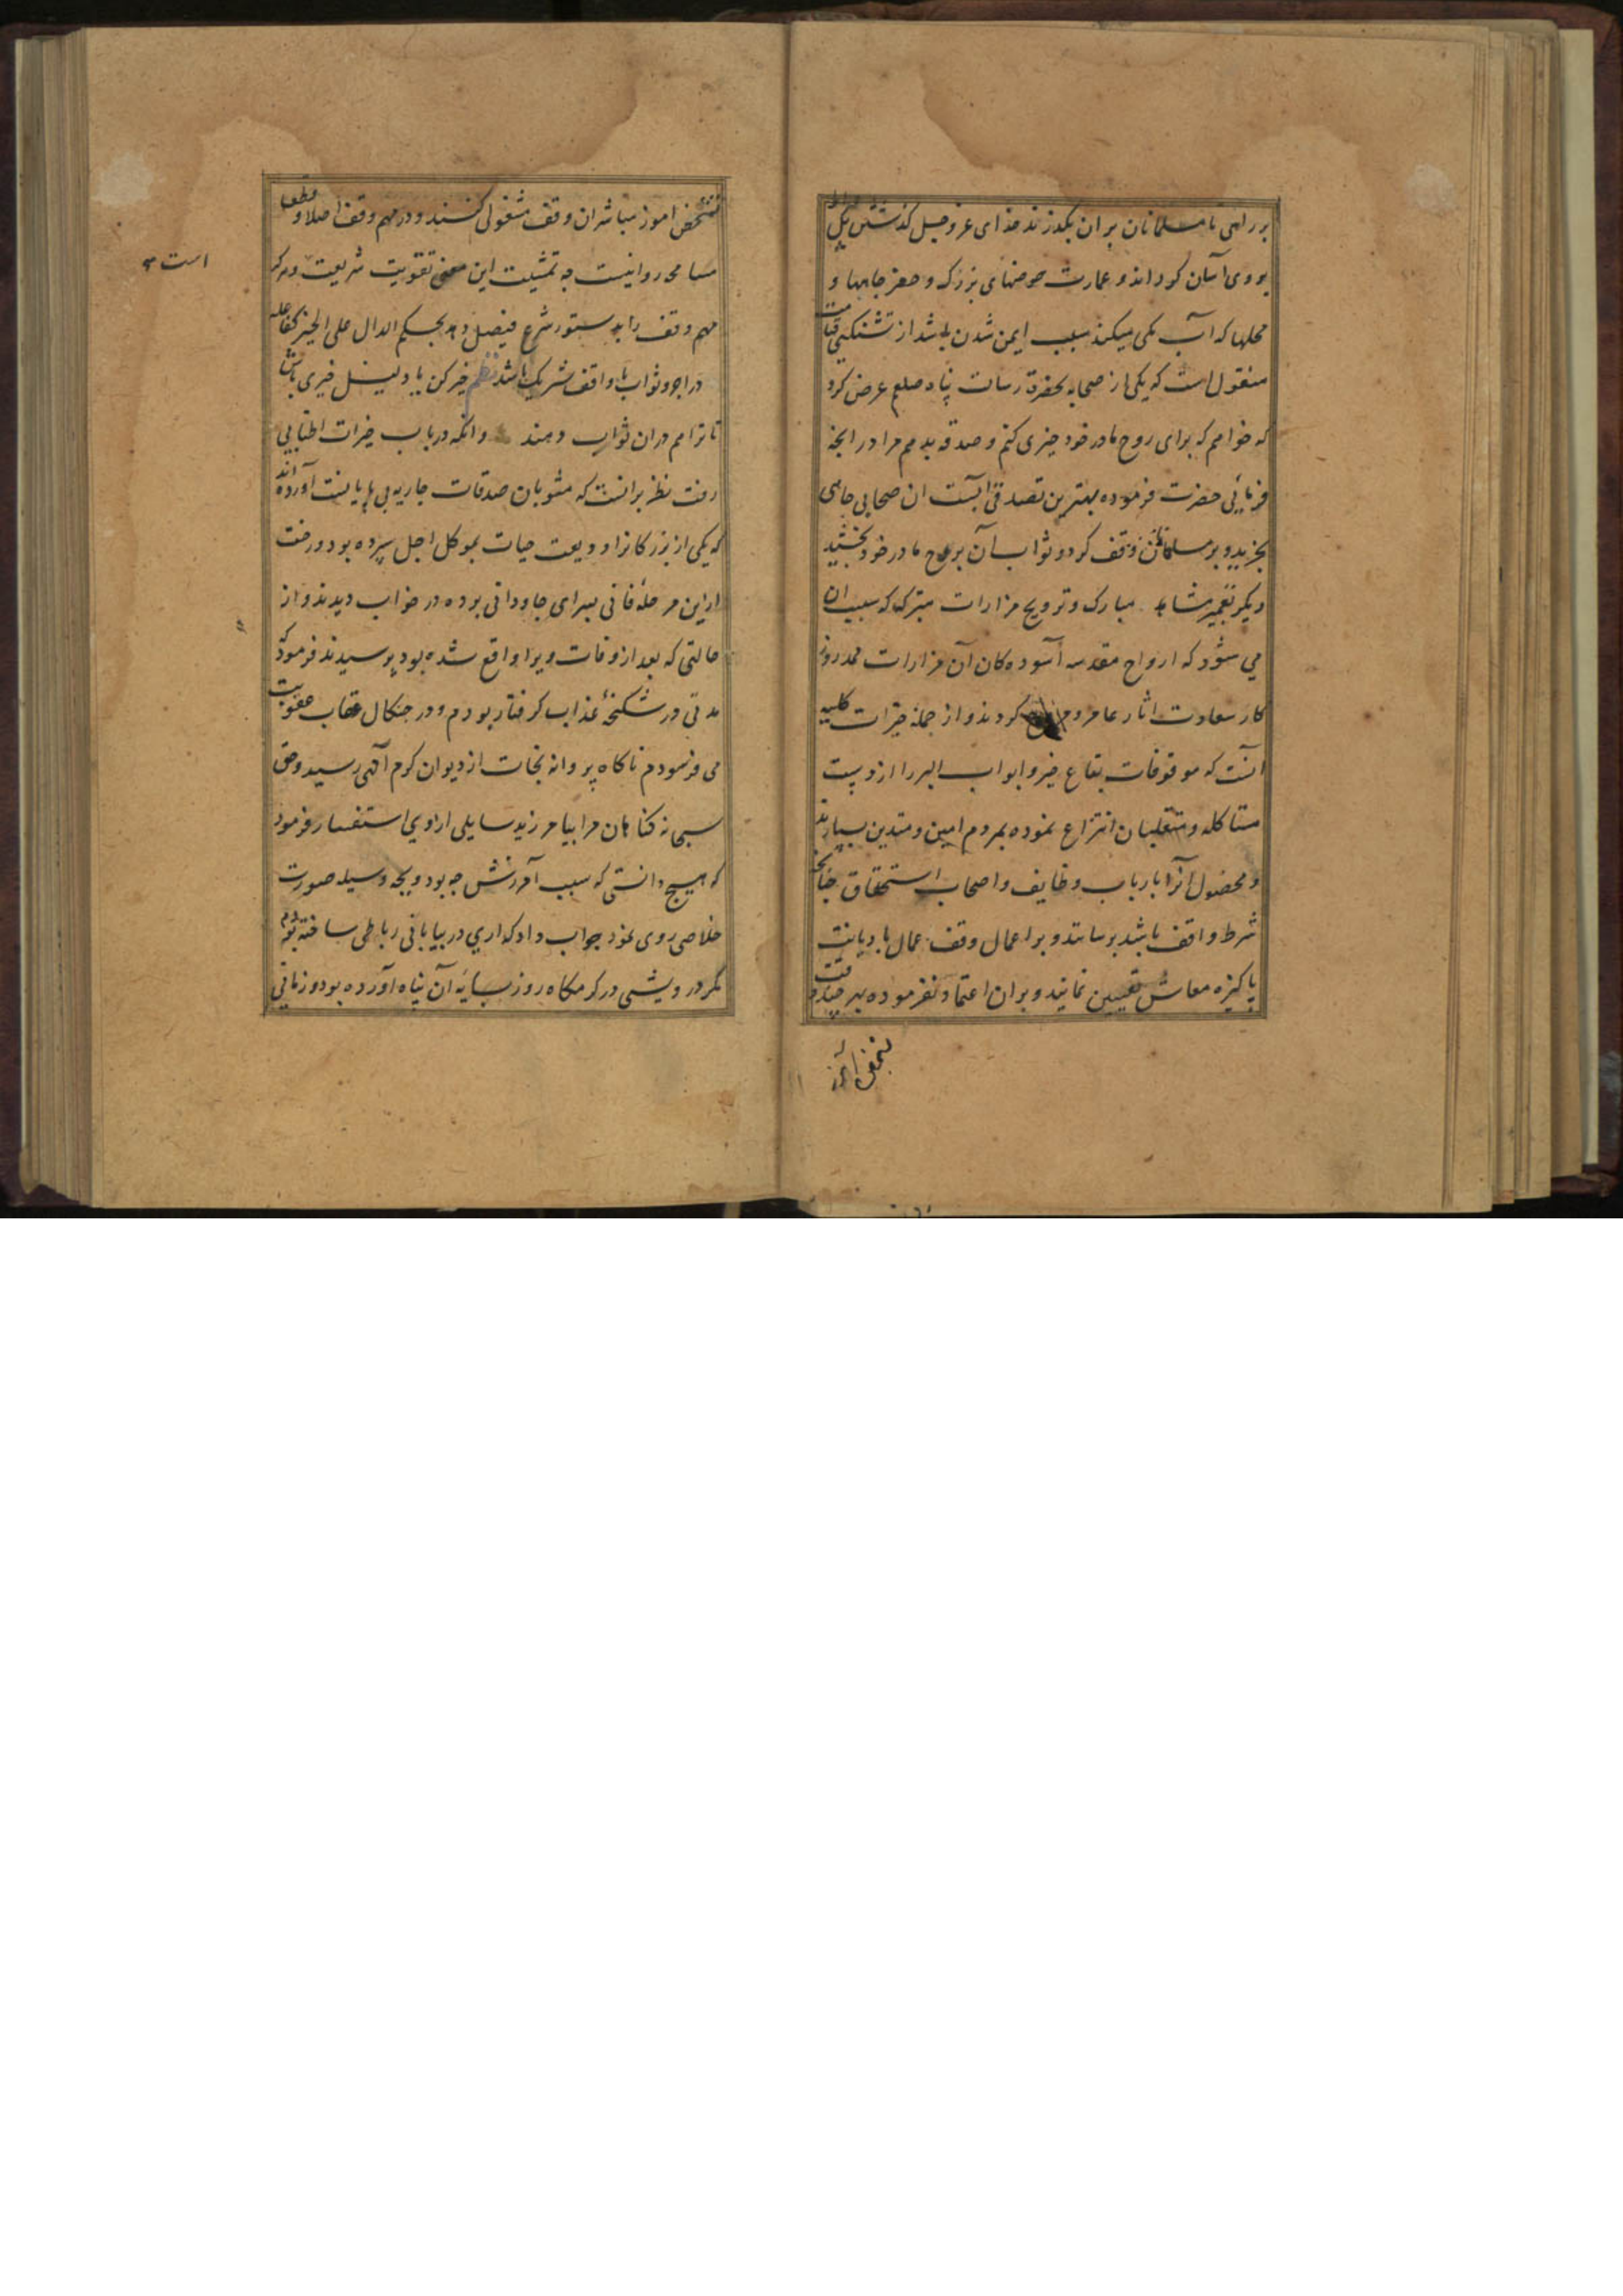 بر راهی تا مسلمانان بر ان بگذرند خدای عز و جل گذشتن پل
بر وی آسان گرداند و عمارت حوضهای بزرگ و حفر چاهها و
محلها که آب یکی میکند سبب ایمن شدن باشد از تشنگی قیامت
منقول است که یکی از صحابه بحضرة رسالت پناه صلعم عرض کرد
که خواهم که برای روح مادر خود چیزی کنم و صدقه بدهم مرا در انچه
فرمائی حضرت فرموده بهترین تصدقی آبست ان صحابی چاهی
بخرید و بر مسلمانان وقف کرد و ثواب آن بروح مادر خود بخشید
دیگر تعمیر مشاهد مبارک و ترویج مزارات متبرکه که سبب ان
می شود که ارواح مقدسه آسوده کان آن مزارات ممد روز
کار سعادت اثار عامر و مروج گردند و از جمله خیرات کلیه
آنست که موقوفات بقاع خیر و ابواب البر را از دست
متاکله و متغلبان انتزاع نموده بمردم امین و متدین سپارند
و محصول آنرا بارباب وظایف و اصحاب استحقاق چنانچه
شرط واقف باشد برسانند و بر اعمال وقف عمال با دیانت
پاکیزه معاش تعیین نمایند و بران اعتماد نفرموده بهر چند وقت
تفحص امور مباشران وقف مشغولی کنند و در مهم وقف اصلا و قطعا
مسامحه روا نیست چه تمشیت این معنی تقویت شریعت و هر که
است
مهم وقف را بدستور شرع فیصل دهد بحکم الدال علی الخیر کفاعله
در اجر و ثواب با واقف شریک باشد نظم خیر کن یا دلیل خیری باش
تا ترا هم دران ثواب دهند و انکه در باب خیرات اطنابی
رفت نظر برانست که مثوبان صدقات جاریه بی پایانست آورده اند
که یکی از بزرکانرا ودیعت حیات بموکل اجل سپرده بود و رخت
از این مرحلهٔ فانی بسرای جاودانی برده در خواب دیدند و از
حالتی که بعد از وفات ویرا واقع شده بود پرسیدند فرمود که
مدتی در شکنجهٔ عذاب گرفتار بودم و در چنگال عقاب عقوبت
می فرسودم ناکاه پروانه نجات از دیوان کرم آلهی رسید و حق
سبحانه کناهان مرا بیامرزید سایلی از اوی استفسار فرمود
که هیچ دانستی که سبب آمرزش چه بود و بچه وسیله صورت
خلاصی روی نمود جواب داد که اری در بیابانی رباطی ساخته بودم
مگر درویشی در کرمکاه روز بسایهٔ آن پناه آورده بود و زمانی